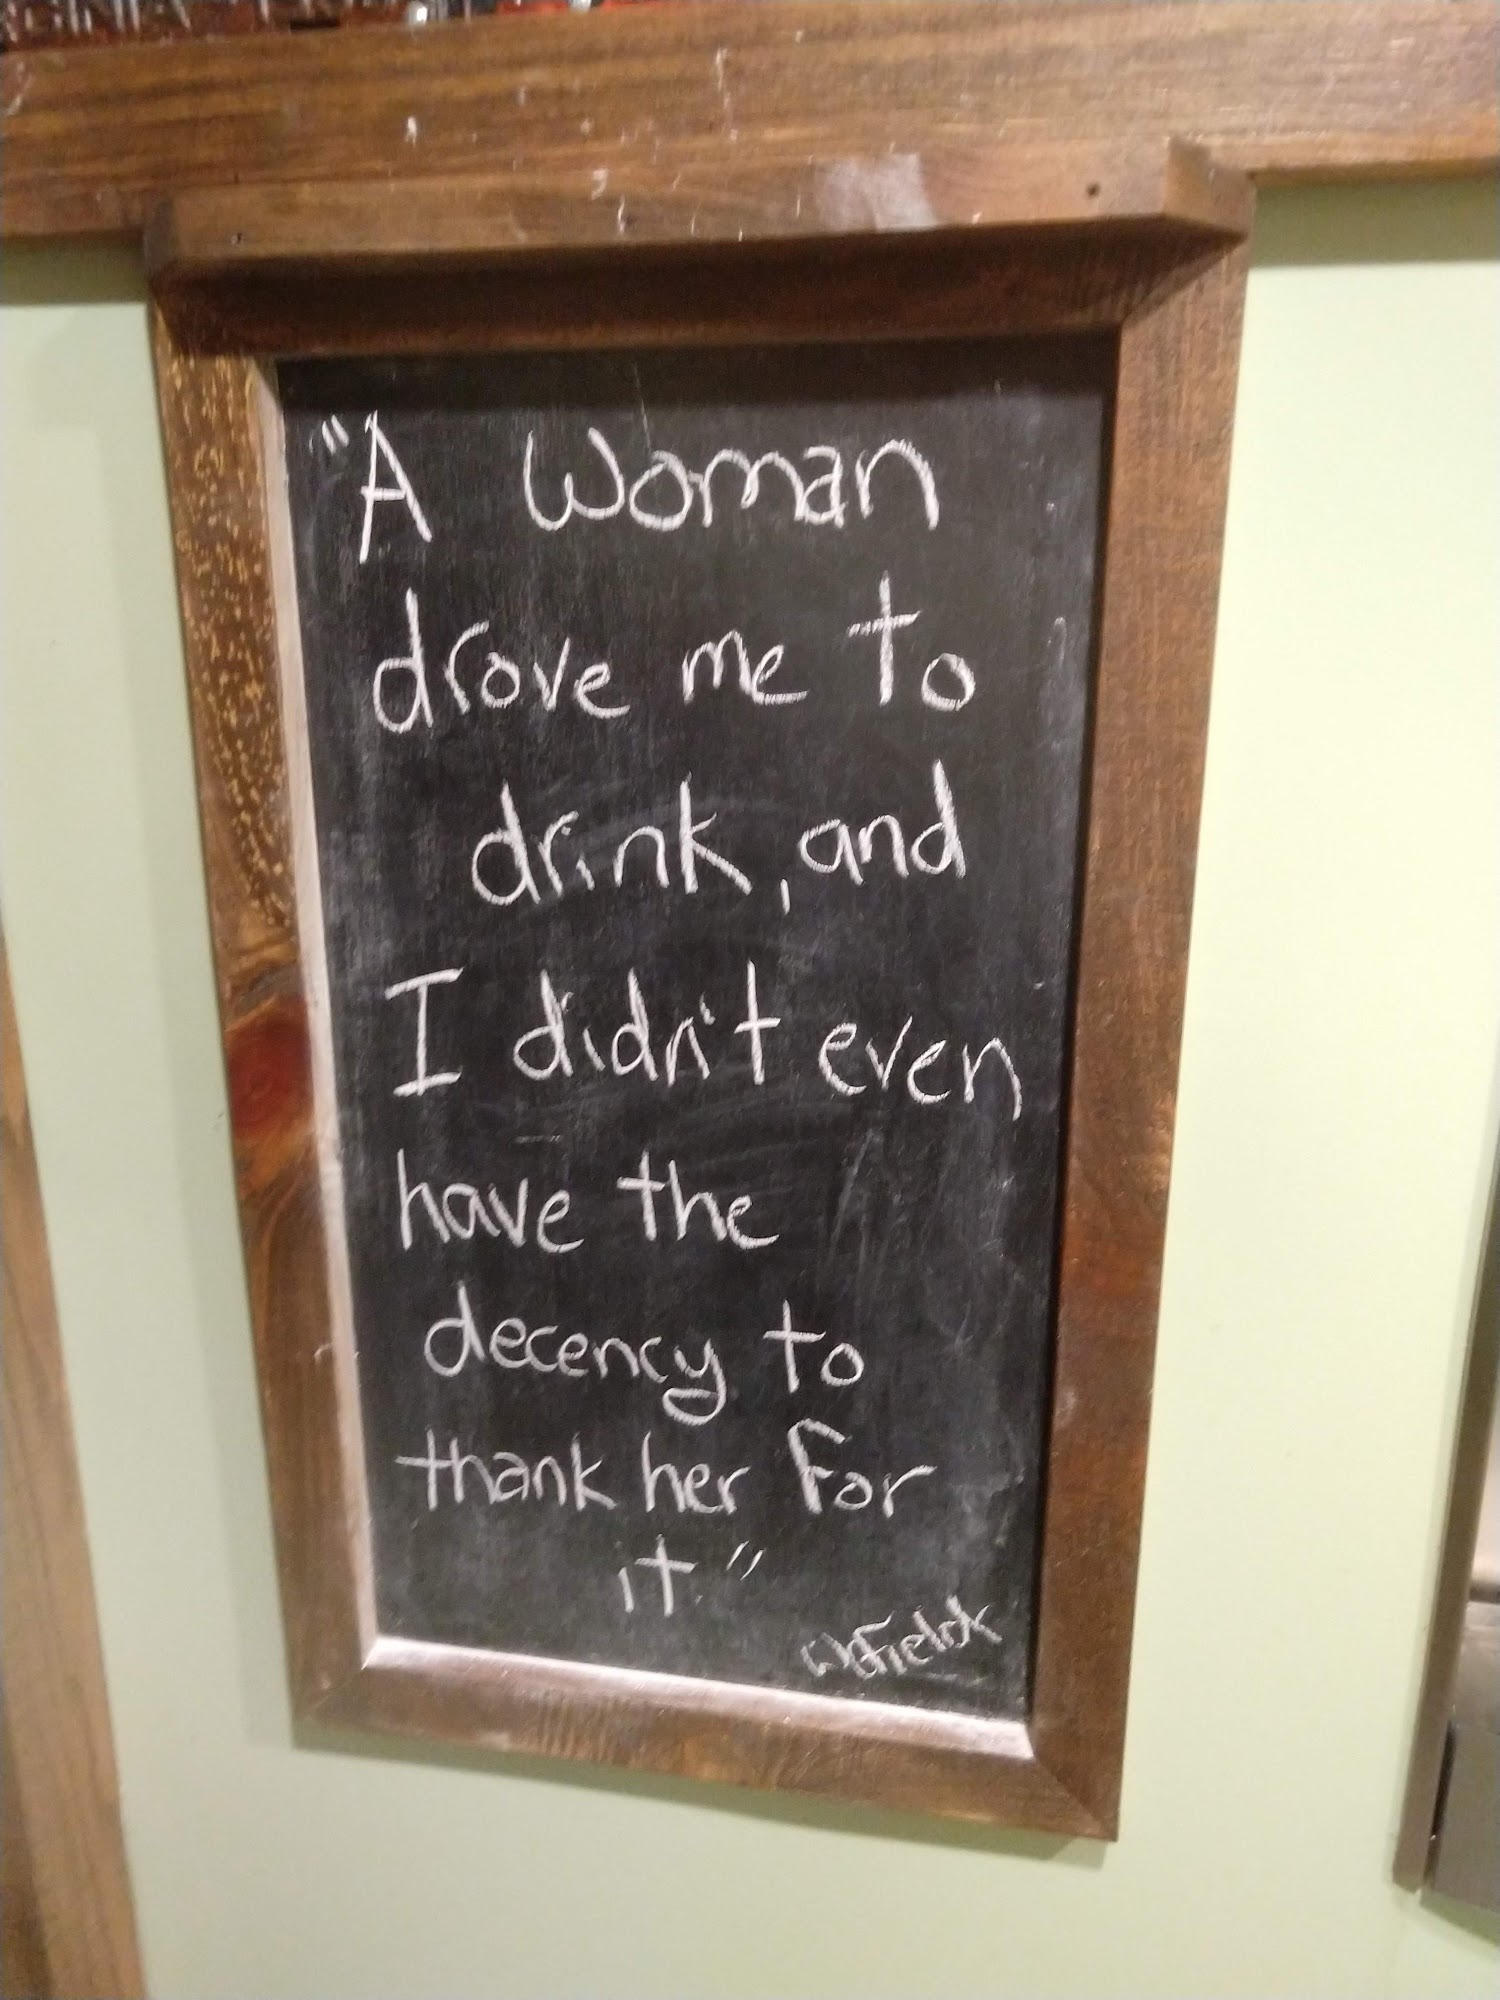 "A Woman
drove me to
drink, and
I didn't even
have the
decency to
thank her for
it."
WCFields